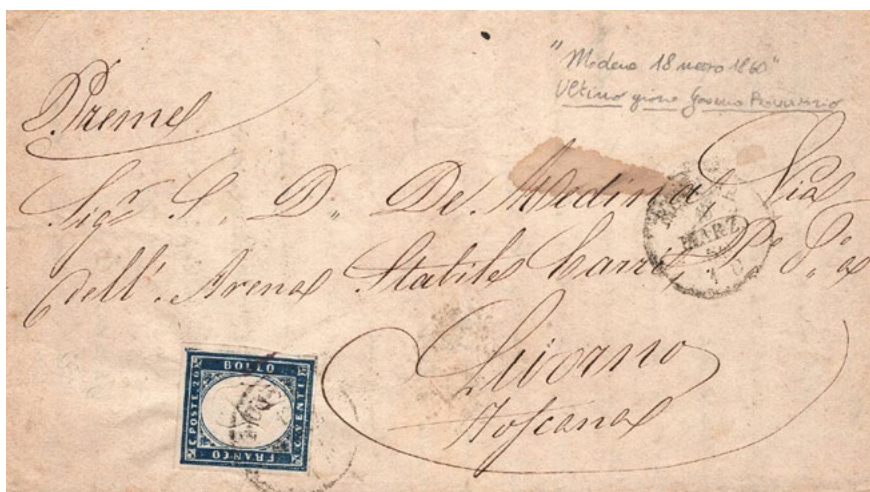 "Modena 18 marzo 1860"
Ultimo giorno Governo Provvisorio
Preme
Sigr. S. D. De Medina Via
dell'. Arena Stabile Carri, Po. Po. a
Livorno
Toscana
MARZ
FRANCO
BOLLO
C. POSTE. 20
C. VENTI